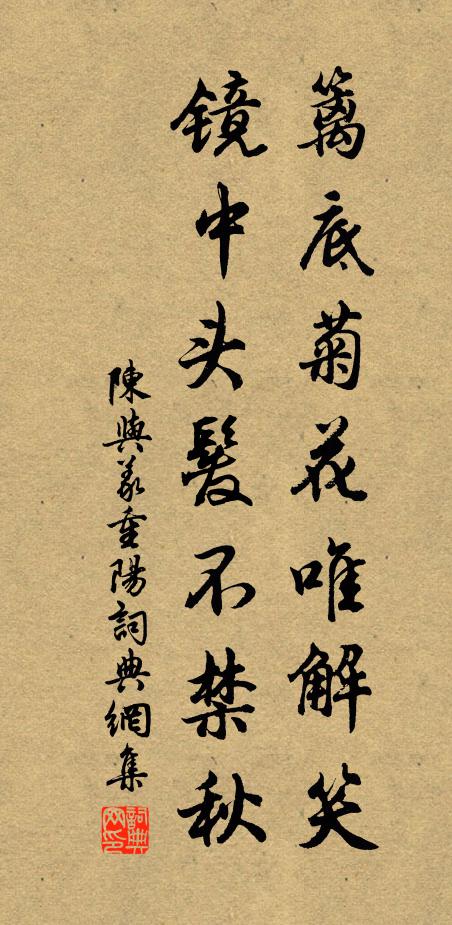 篱底菊花唯解笑
镜中头髮不禁秋
陳與義重陽詞典網集
詞典
网印